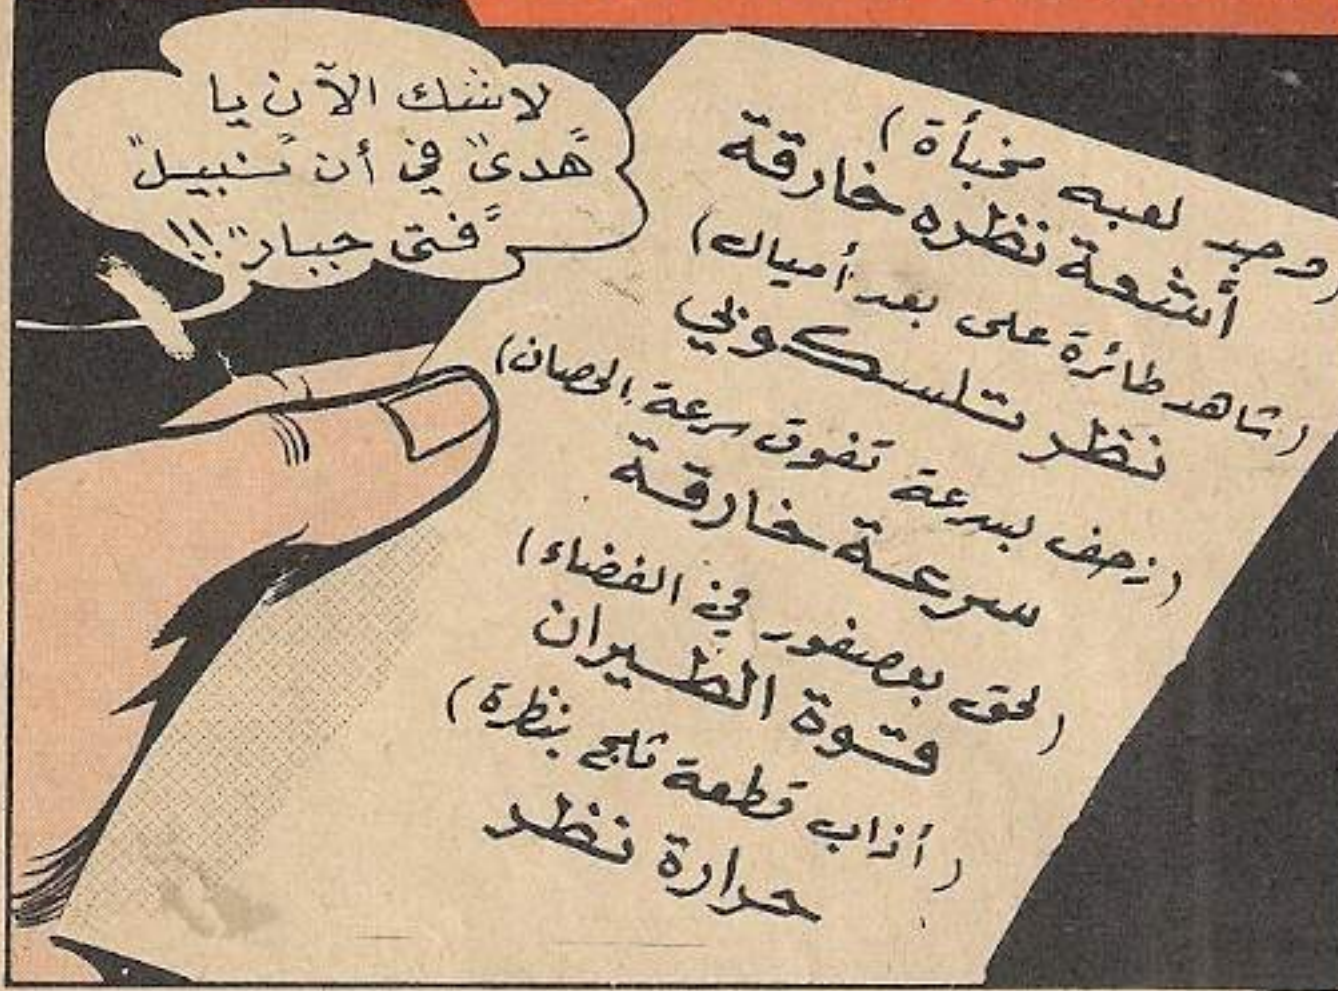 لا شك الآن يا
"هدى" في أن "نبيل"
"فتى جبار"!!
(وجد لعبه مخبأة)
أشعة نظره خارقة
(شاهد طائرة على بعد أميال)
نظر تلسكوبي
(زحف بسرعة تفوق سرعة الحصان)
سرعة خارقة
(لحق بعصفور في الفضاء)
قوة الطيران
(أذاب قطعة ثلج بنظرة)
حرارة نظر